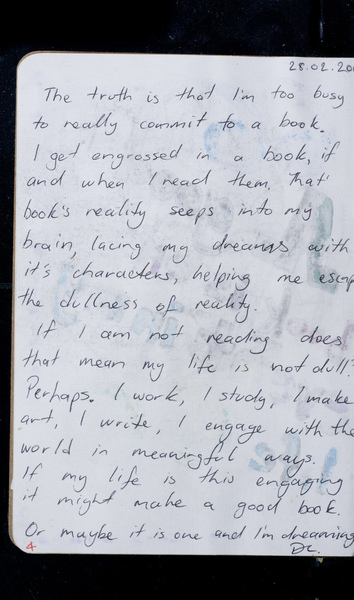 28.02.20
The truth is that I'm too busy
to really commit to a book.
I get engrossed in a book, if
and when I read them. That
book's reality seeps into my
brain, lacing my dreams with
it's characters, helping me escap
the dullness of reality.
If I am not reading does
that mean my life is not dull?
Perhaps. I work, I study, I make
art, I write, I engage with the
world in meaningful ways.
If my life is this engaging
it might make a good book.
Or maybe it is one and I'm dreaming
DC.
4